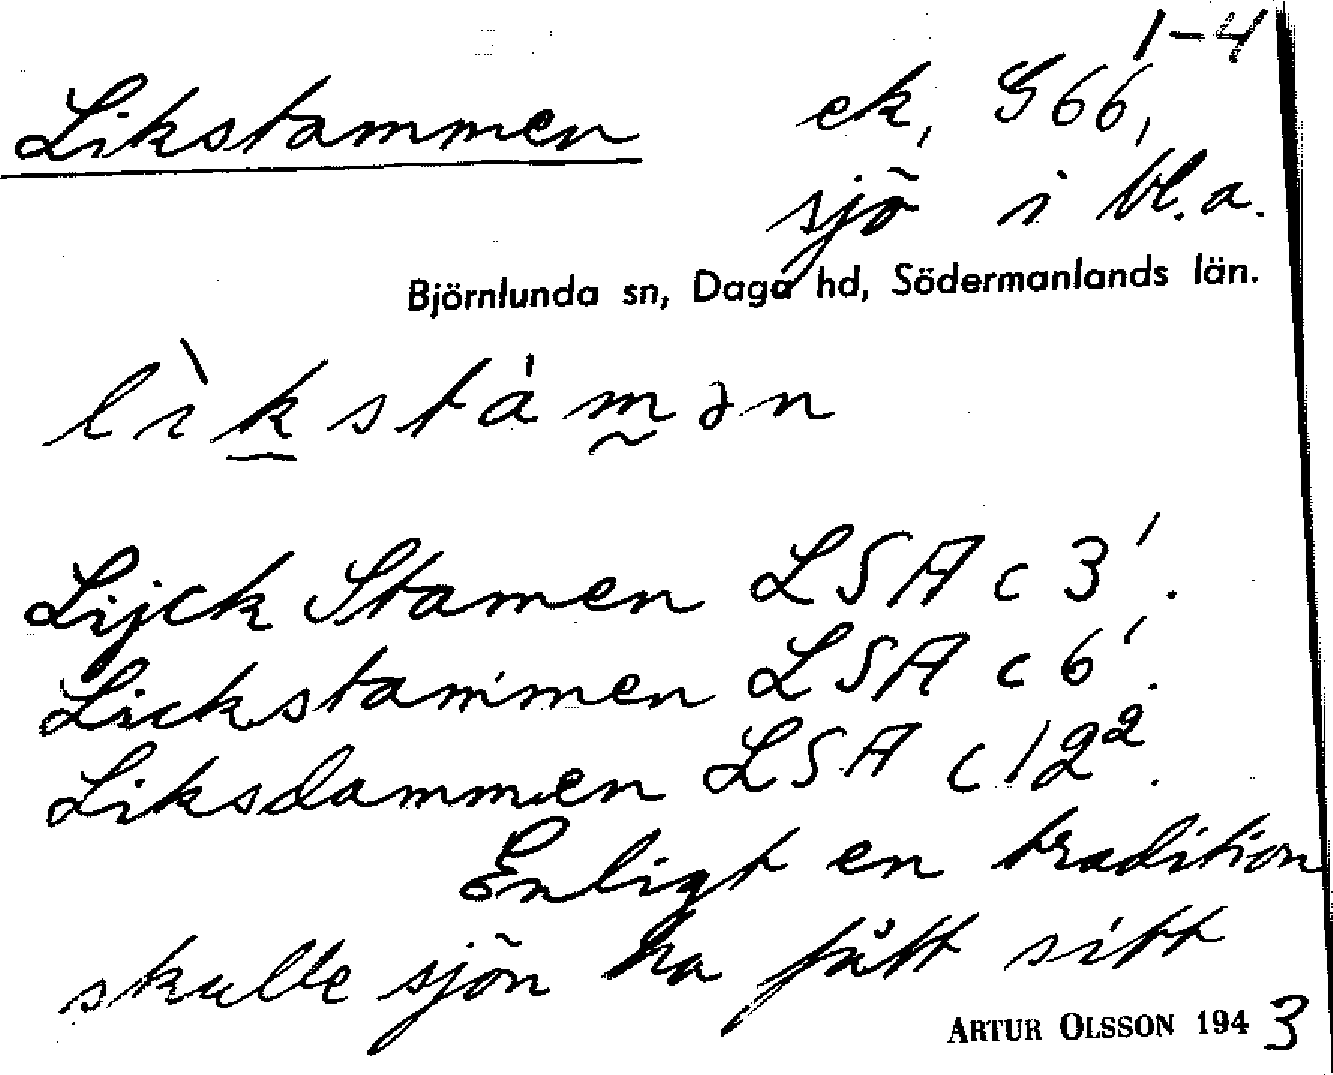 1-4
Likstammen ek, G66,
sjö i bl.a.
Björnlunda sn, Daga hd, Södermanlands län.
lìkstámən
Lijck Stamen LSA c 3'.
Lickstammen LSA c 6'.
Liksdammen LSA c 12².
Enligt en tradition
skulle sjön ha fått sitt
ARTUR OLSSON 1943